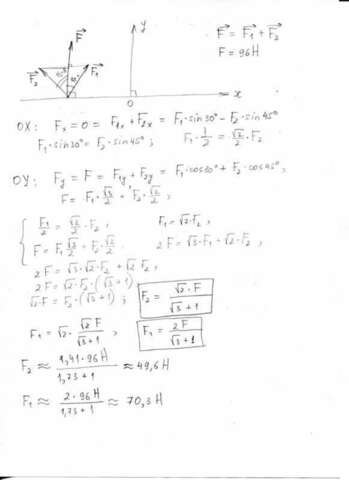 y
F⃗
F⃗₂ 45° 30° F⃗₁
0 x
F⃗ = F⃗₁ + F⃗₂
F = 96H
OX: Fₓ = 0 = F₁ₓ + F₂ₓ = F₁·sin30° - F₂·sin45°
F₁·sin30° = F₂·sin45°; F₁·1/2 = √2/2·F₂
OY: Fy = F = F₁y + F₂y = F₁·cos30° + F₂·cos45°;
F = F₁·√3/2 + F₂·√2/2;
F₁/2 = √2/2·F₂; F₁ = √2·F₂;
F = F₁√3/2 + F₂·√2/2. 2F = √3·F₁ + √2·F₂;
2F = √3·√2·F₂ + √2·F₂;
2F = √2·F₂·(√3+1)
√2·F = F₂·(√3+1); F₂ = √2·F/√3+1
F₁ = √2·√2F/√3+1; F₁ = 2F/√3+1
F₂ ≈ 1,41·96H/1,73+1 ≈ 49,6H
F₁ ≈ 2·96H/1,73+1 ≈ 70,3H